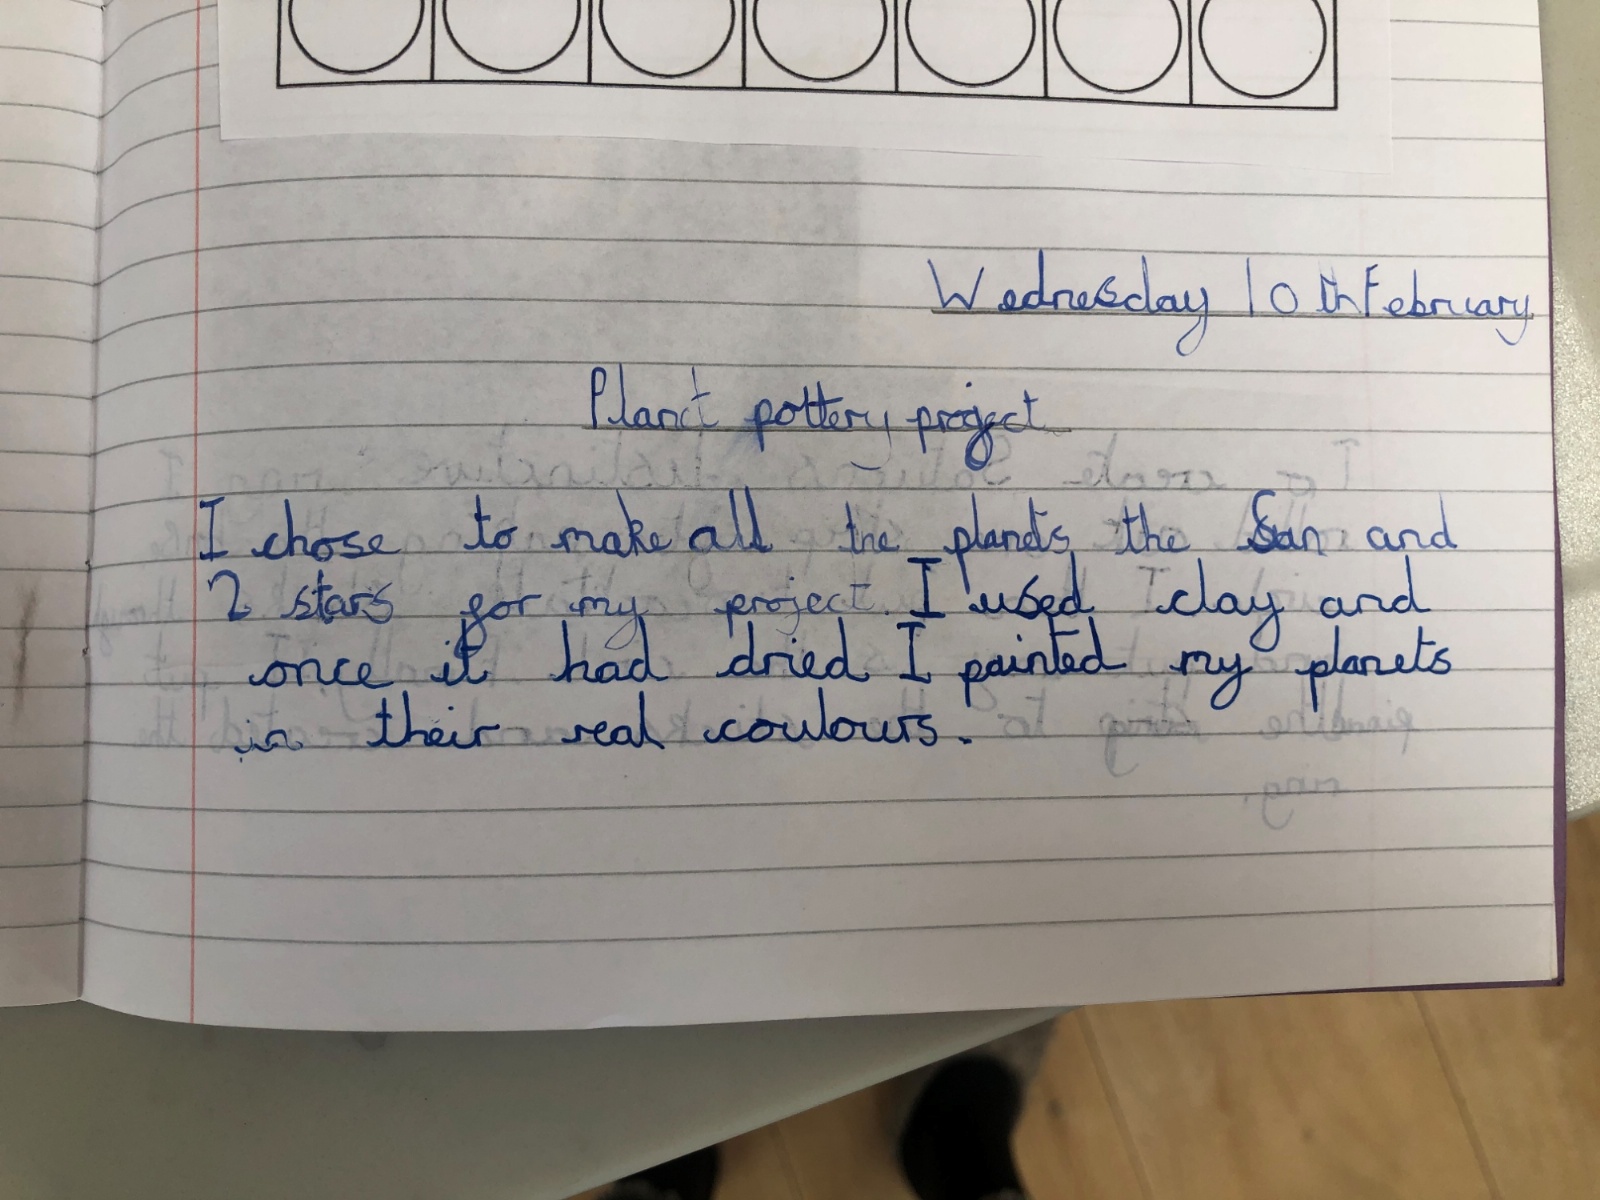 Wednesday 10th February
Planet pottery project
I chose to make all the planets, the Sun and
2 stars for my project. I used clay and
once it had dried I painted my planets
in their real coulours.